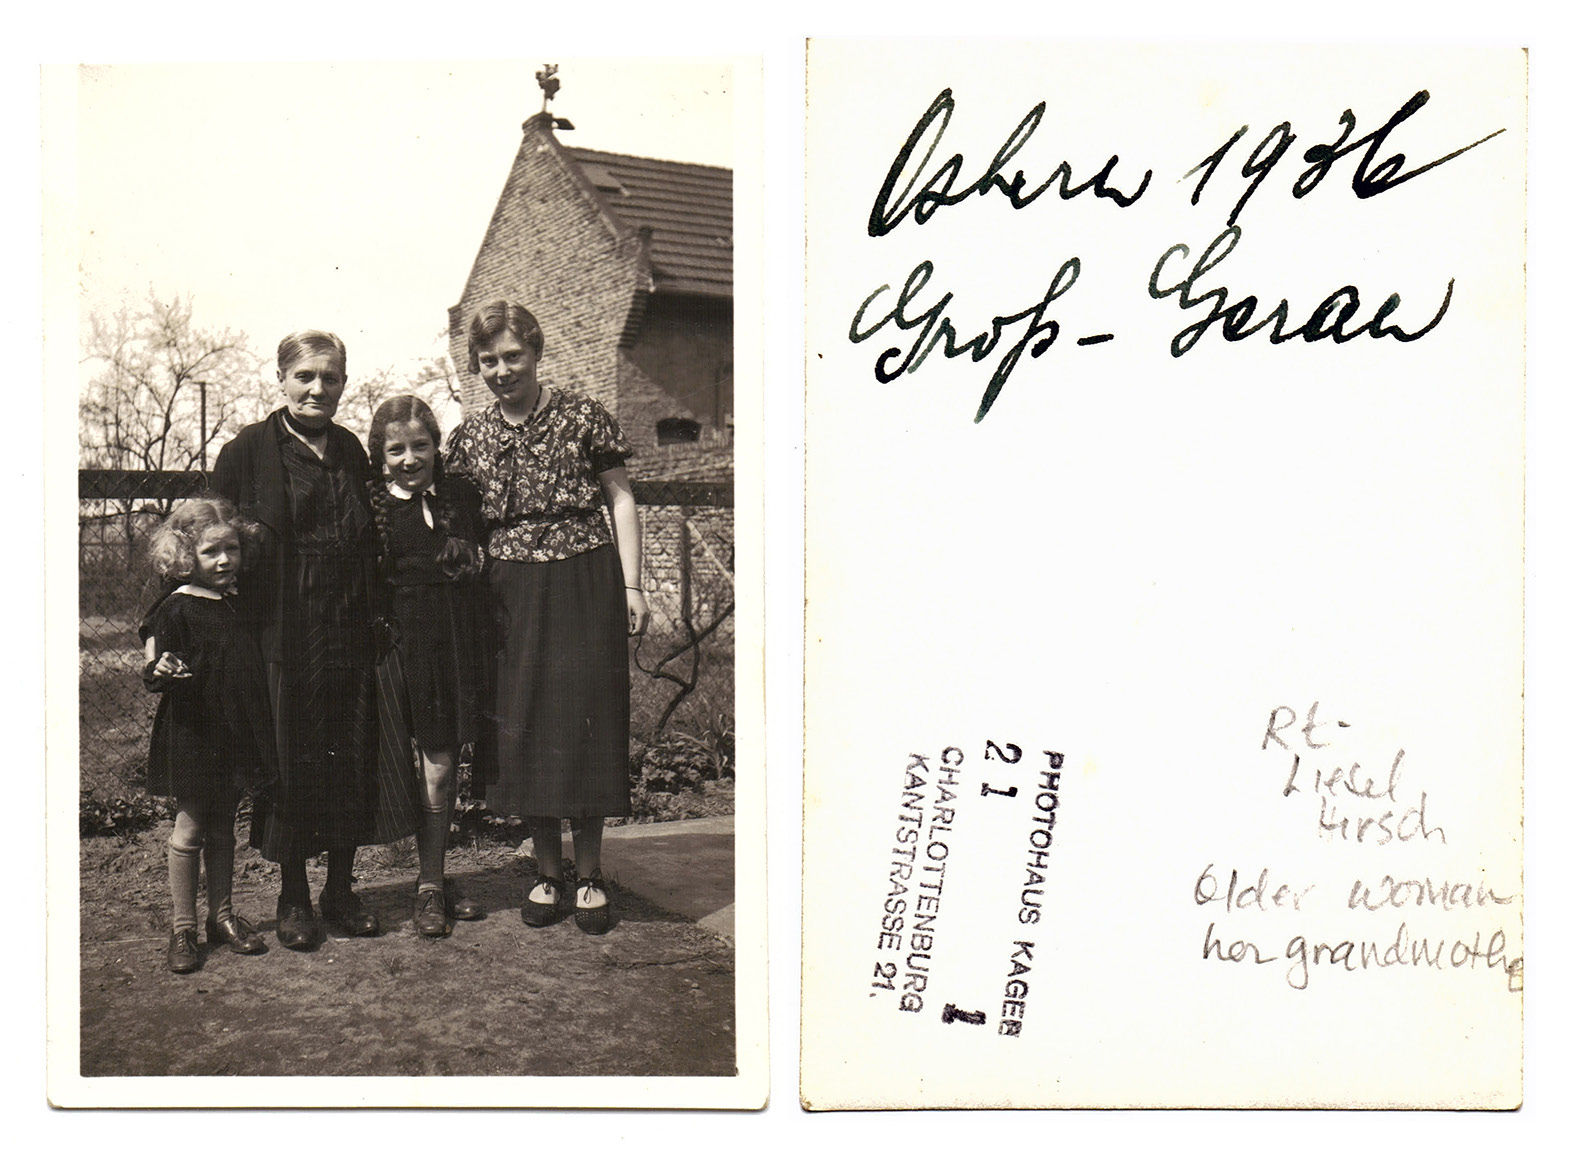 Ostern 1936
Groß-Gerau
PHOTOHAUS KAGER
21 1
CHARLOTTENBURG
KANTSTRASSE 21.
Rt-
Liesel
Hirsch
Older woman
her grandmothe